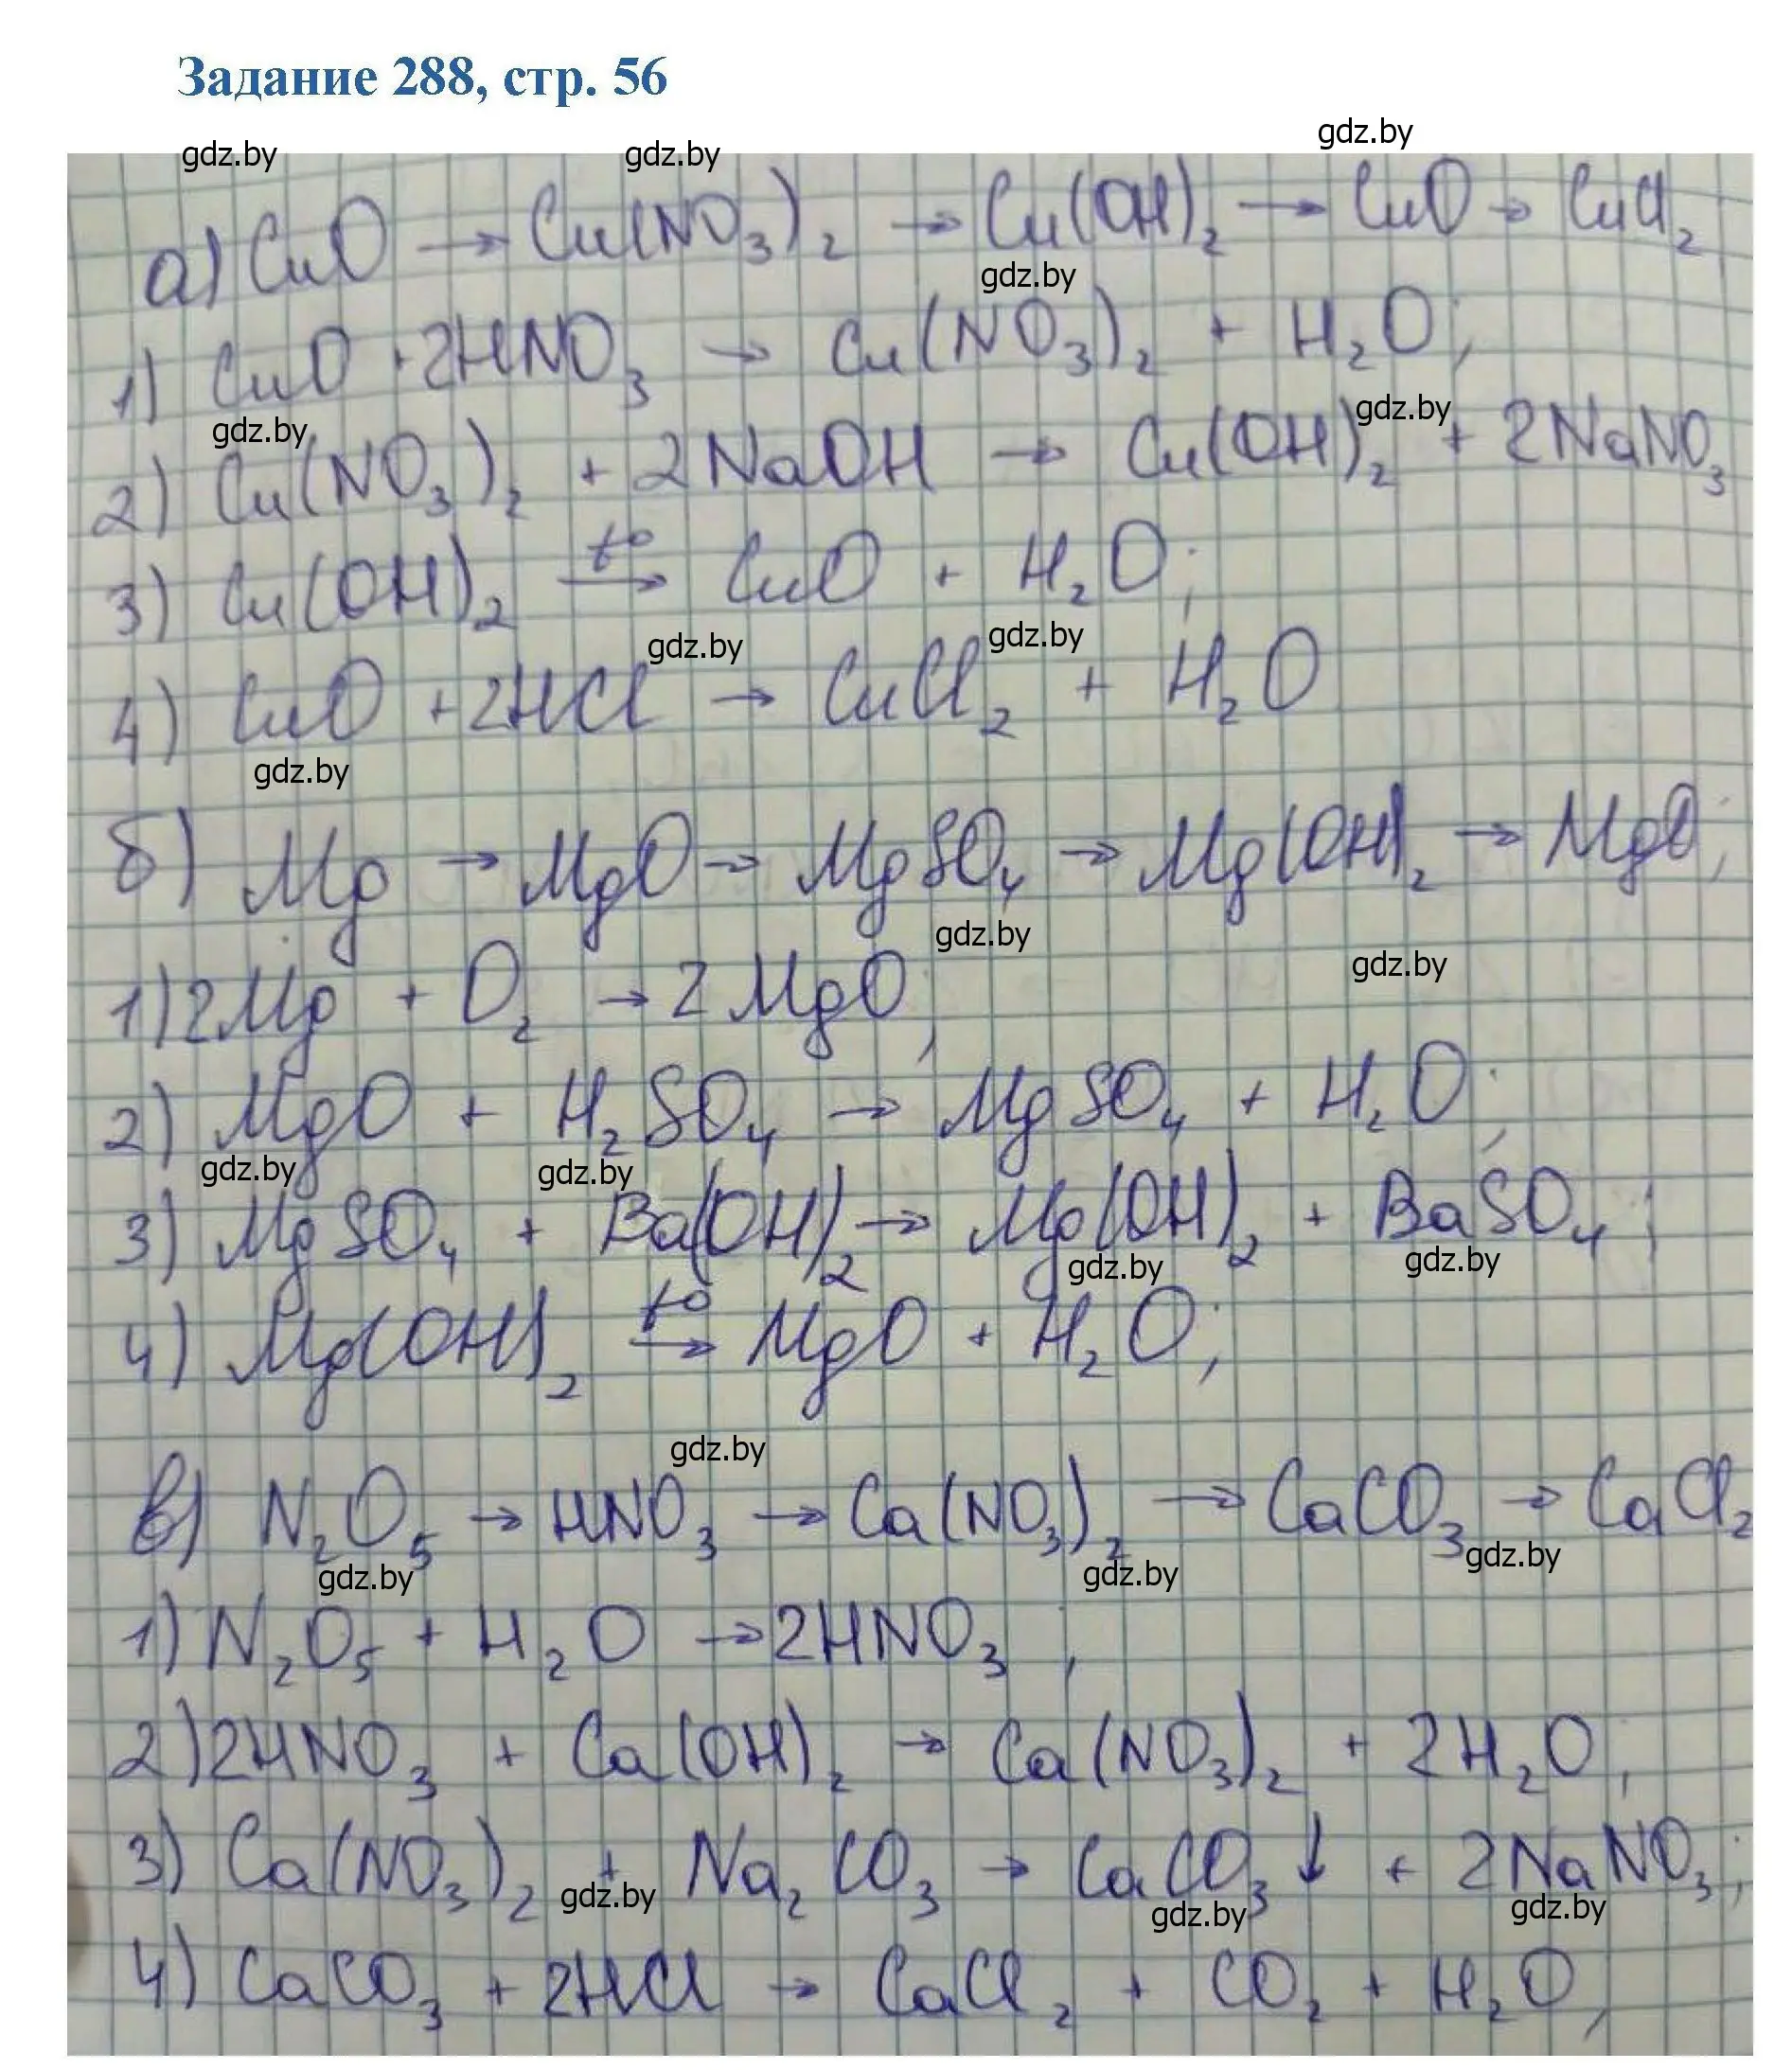 Задание 288, стр. 56
gdz.by gdz.by gdz.by
а) CuO → Cu(NO₃)₂ → Cu(OH)₂ → CuO → CuCl₂
gdz.by
1) CuO + 2HNO₃ → Cu(NO₃)₂ + H₂O;
gdz.by gdz.by
2) Cu(NO₃)₂ + 2NaOH → Cu(OH)₂ + 2NaNO₃
3) Cu(OH)₂ t° → CuO + H₂O;
gdz.by gdz.by
4) CuO + 2HCl → CuCl₂ + H₂O
gdz.by
б) Mg → MgO → MgSO₄ → Mg(OH)₂ → MgO;
gdz.by gdz.by
1) 2Mg + O₂ → 2MgO;
2) MgO + H₂SO₄ → MgSO₄ + H₂O;
gdz.by gdz.by
3) MgSO₄ + Ba(OH)₂ → Mg(OH)₂ + BaSO₄;
gdz.by gdz.by
4) Mg(OH)₂ t° → MgO + H₂O;
gdz.by
в) N₂O₅ → HNO₃ → Ca(NO₃)₂ → CaCO₃ → CaCl₂
gdz.by gdz.by gdz.by
1) N₂O₅ + H₂O → 2HNO₃;
2) 2HNO₃ + Ca(OH)₂ → Ca(NO₃)₂ + 2H₂O;
3) Ca(NO₃)₂ + Na₂CO₃ → CaCO₃↓ + 2NaNO₃;
gdz.by gdz.by gdz.by
4) CaCO₃ + 2HCl → CaCl₂ + CO₂ + H₂O,